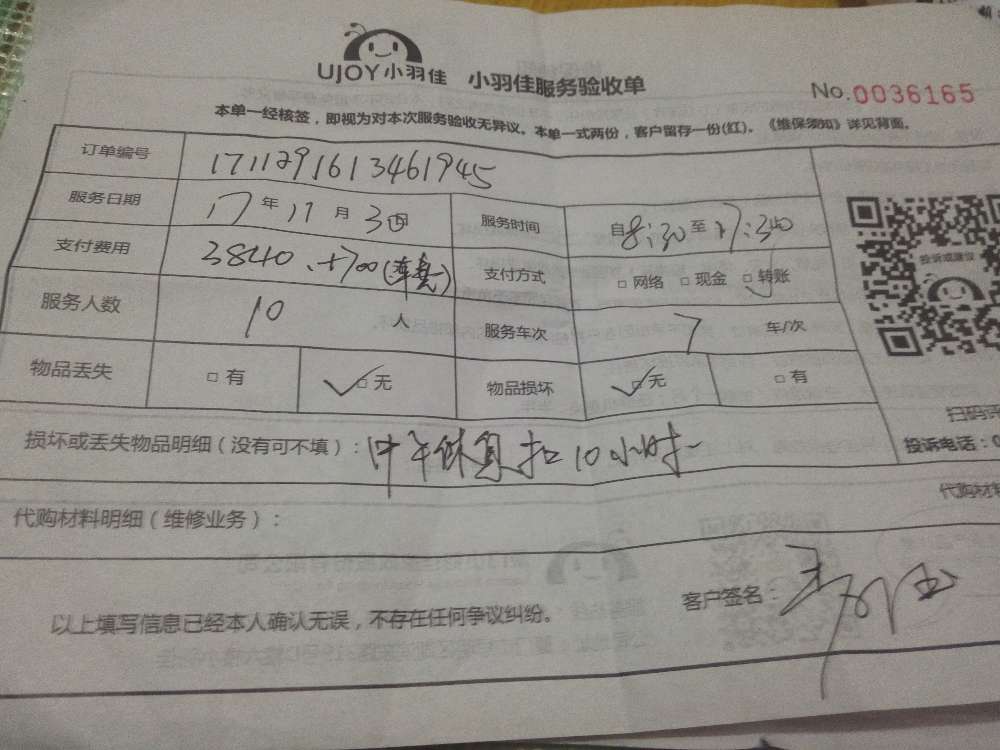 UJOY小羽佳 小羽佳服务验收单
No.0036165
本单一经核签，即视为对本次服务验收无异议。本单一式两份，客户留存一份(红)。《维保须知》详见背面。
订单编号 1711291613461945
服务日期 17年11月30日 服务时间 自8:30至17:30
支付费用 3840.+700(车费) 支付方式 □网络 □现金 □转账
服务人数 10人 服务车次 7 车/次
物品丢失 □有 □无 物品损坏 □无 □有
投诉或建议
损坏或丢失物品明细（没有可不填）：中午休息扣10小时
投诉电话：0
代购材料明细（维修业务）：
代购材料
以上填写信息已经本人确认无误，不存在任何争议纠纷。
客户签名：